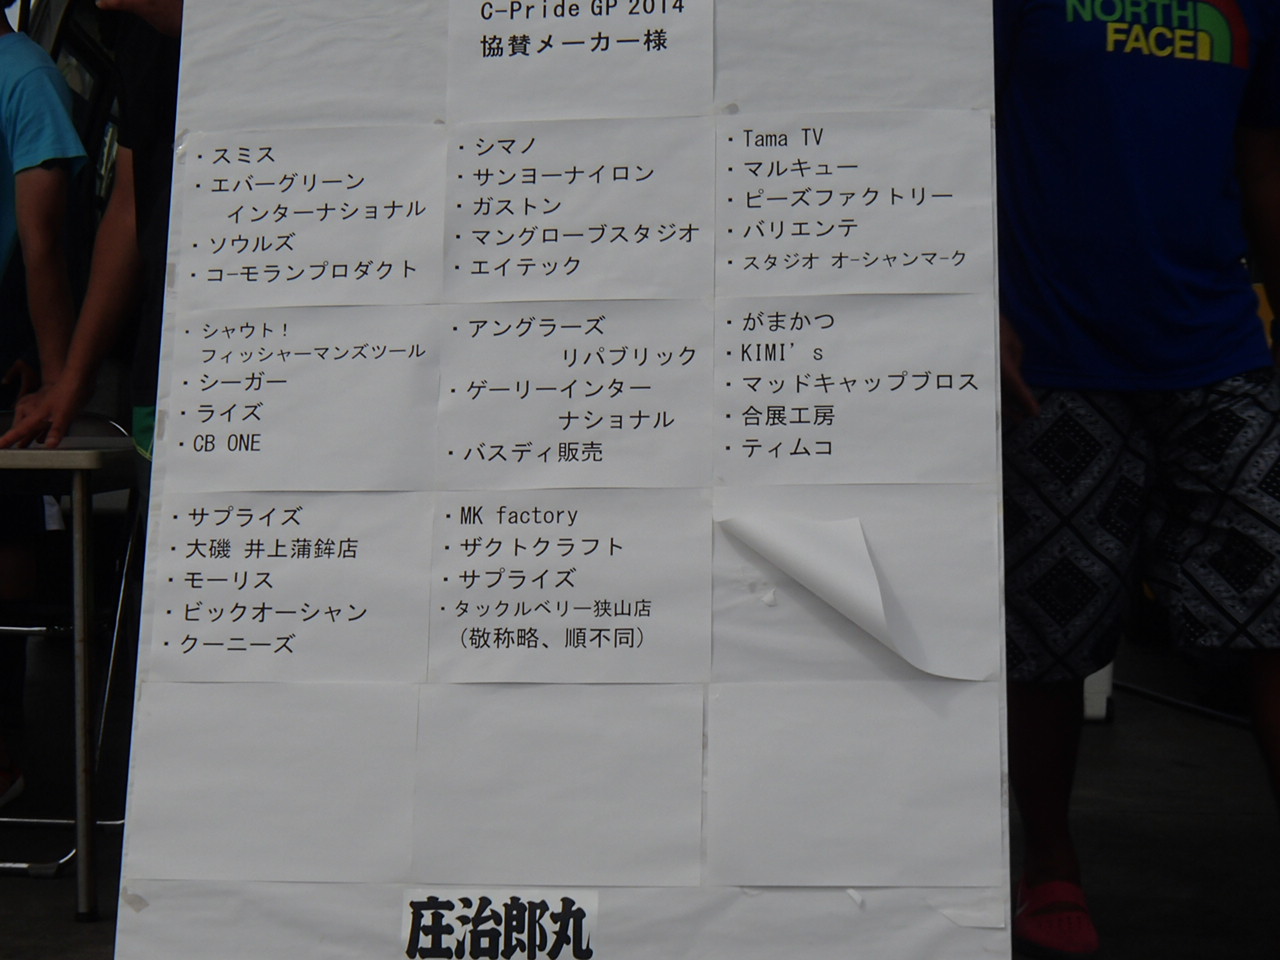 C-Pride GP 2014
協賛メーカー様
・スミス
・エバーグリーン
インターナショナル
・ソウルズ
・コーモランプロダクト
・シマノ
・サンヨーナイロン
・ガストン
・マングローブスタジオ
・エイテック
・Tama TV
・マルキュー
・ピーズファクトリー
・バリエンテ
・スタジオ オーシャンマーク
・シャウト！
フィッシャーマンズツール
・シーガー
・ライズ
・CB ONE
・アングラーズ
リパブリック
・ゲーリーインター
ナショナル
・バスディ販売
・がまかつ
・KIMI's
・マッドキャップブロス
・合展工房
・ティムコ
・サプライズ
・大磯 井上蒲鉾店
・モーリス
・ビックオーシャン
・クーニーズ
・MK factory
・ザクトクラフト
・サプライズ
・タックルベリー狭山店
（敬称略、順不同）
庄治郎丸
NORTH
FACE